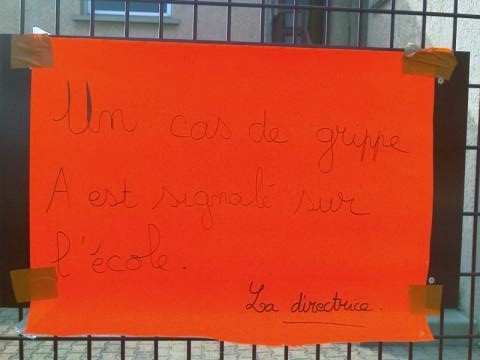 Un cas de grippe
A est signalé sur
l'école.
La directrice.